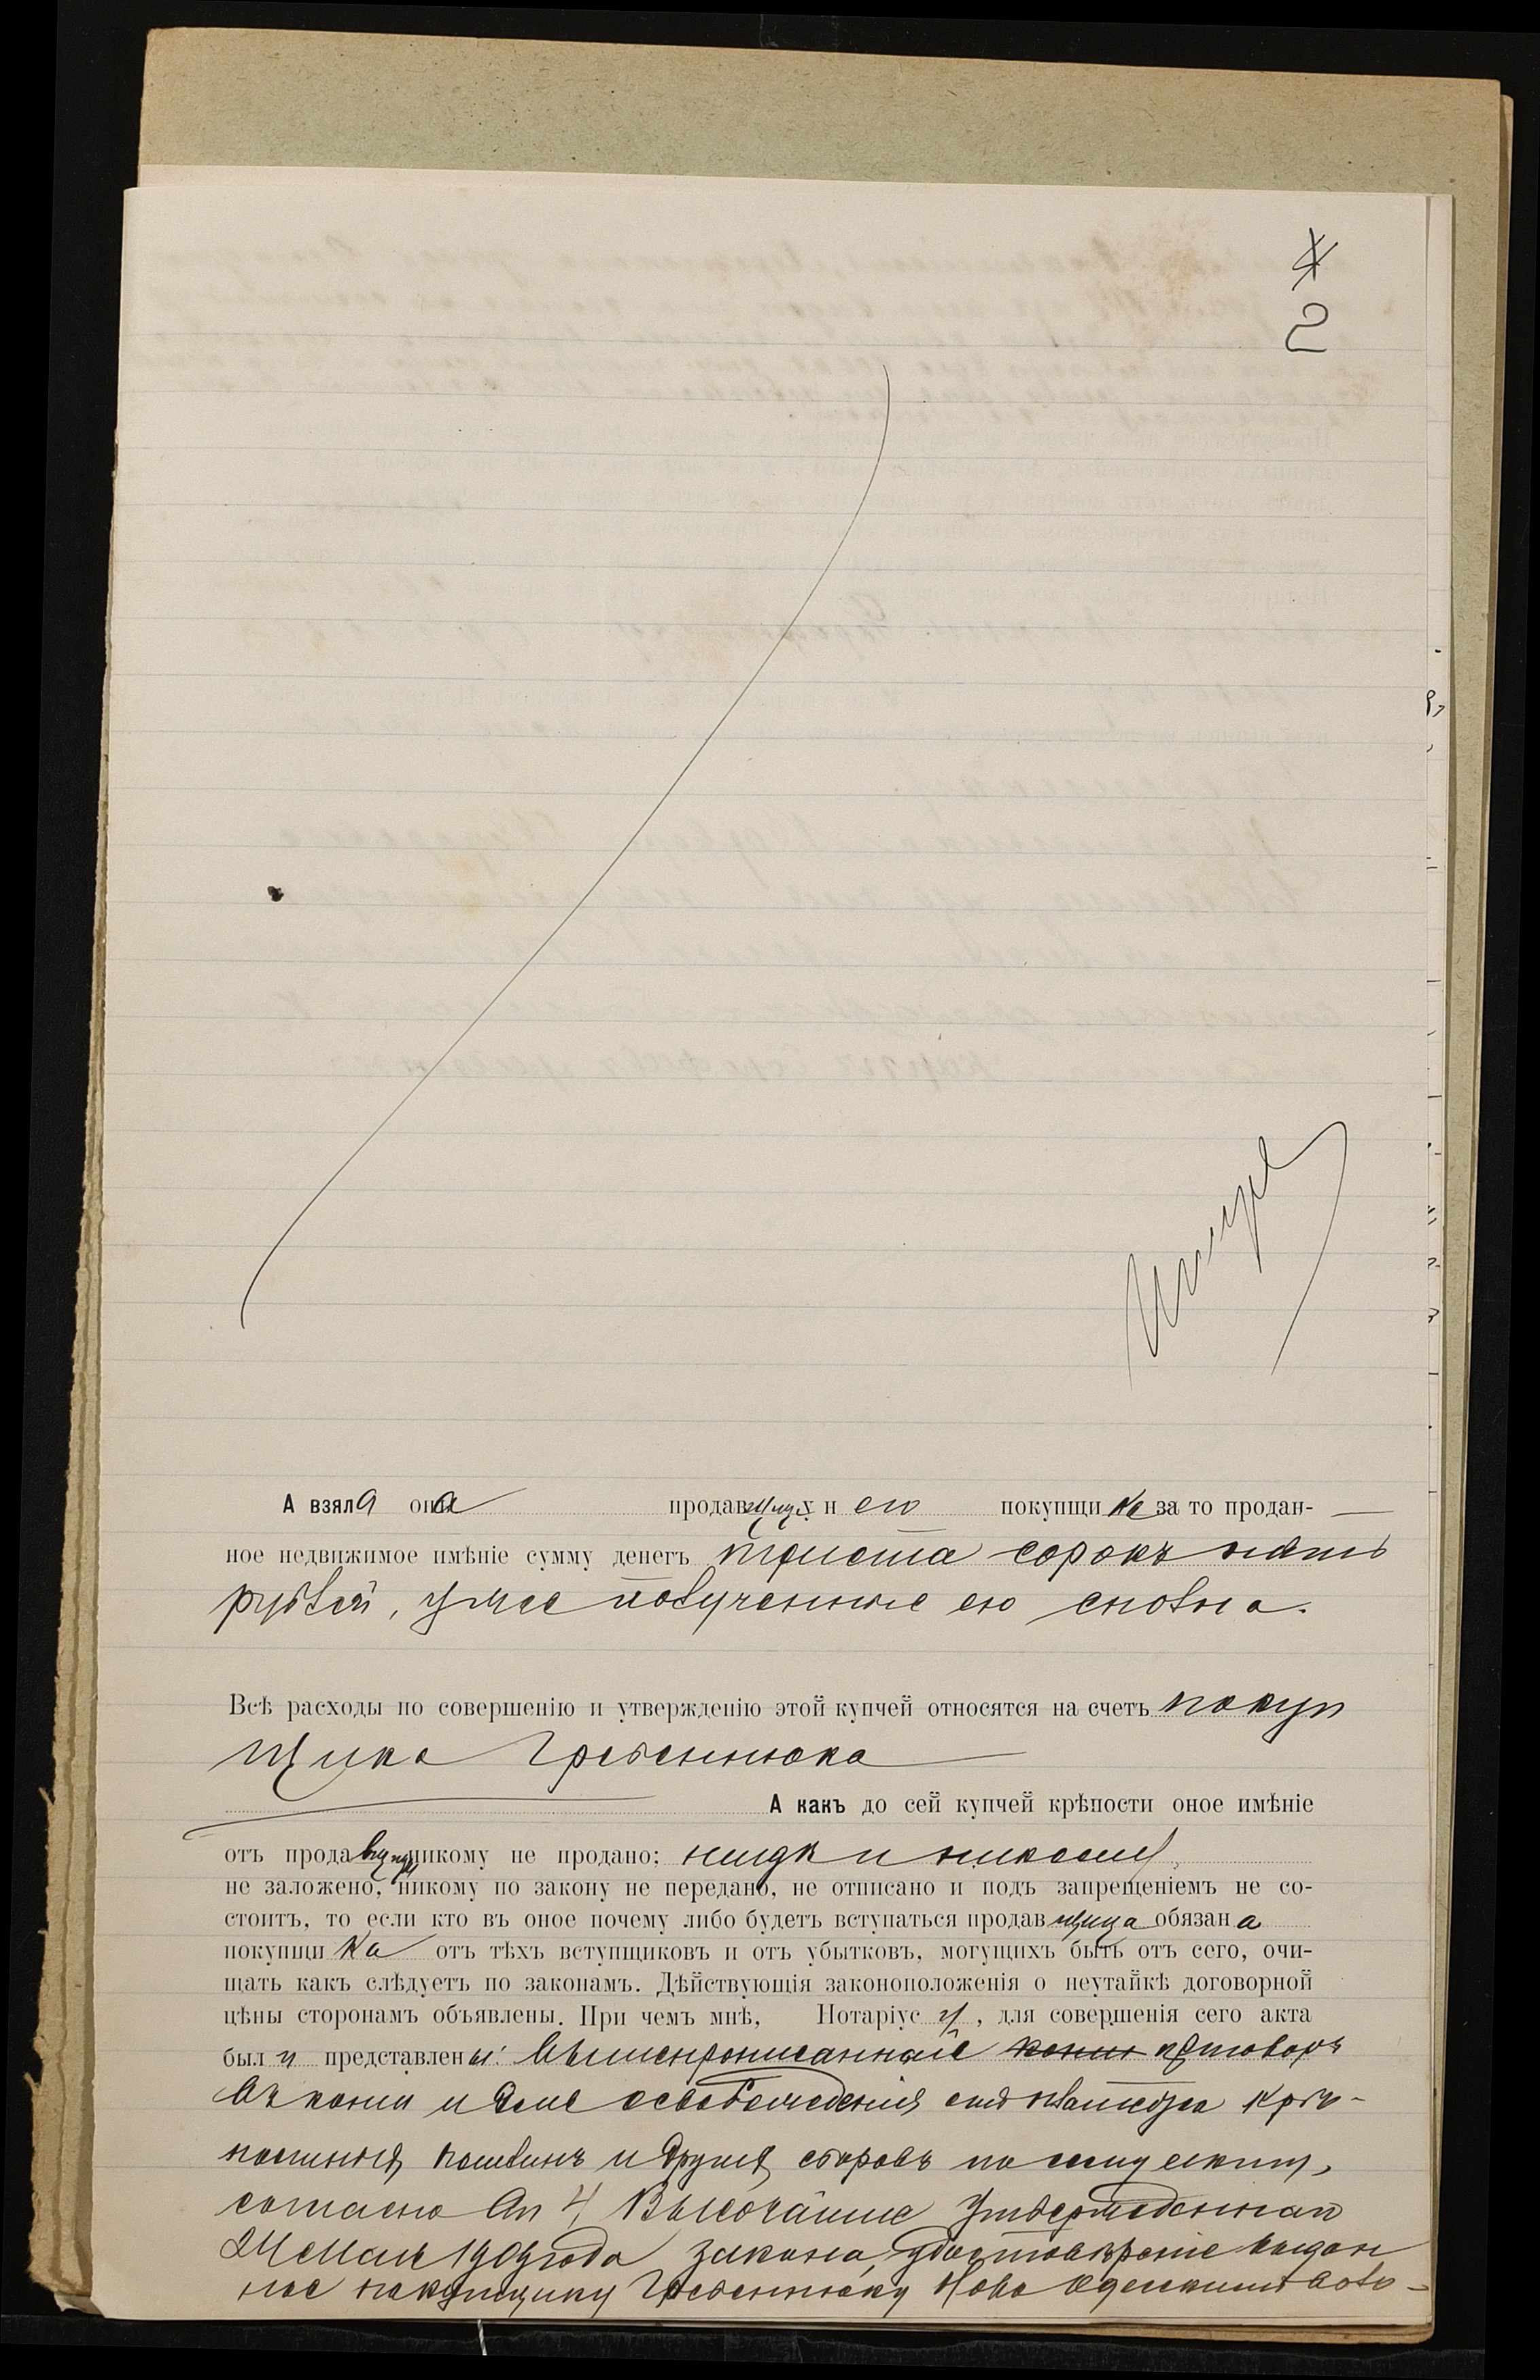 2
А взяла она продавщица у него покупщика за то продан-
ное недвижимое имѣніе сумму денегъ триста сорокъ пять
рублей, уже полученные ею сполна.
Всѣ расходы по совершенію и утвержденію этой купчей относятся на счетъ покуп
щика Гребеннюка
А какъ до сей купчей крѣпости оное имѣніе
отъ продавщицы никому не продано;
не заложено, никому по закону не передано, не отписано и подъ запрещеніемъ не со-
стоитъ, то если кто въ оное почему либо будетъ вступаться продавщица обязана
покупщика отъ тѣхъ вступщиковъ и отъ убытковъ, могущихъ быть отъ сего, очи-
щать какъ слѣдуетъ по законамъ. Дѣйствующія законоположенія о неутайкѣ договорной
цѣны сторонамъ объявлены. При чемъ мнѣ, Нотаріусу, для совершенія сего акта
были представлены: вышепрописанные копіи приговоръ
въ копіи и для освобожденія отъ платежа крѣ-
постныхъ пошлинъ и другихъ сборовъ по сему акту,
согласно Высочайше утвержденнаго
1909 года закона, удостовѣреніе выдан
ное покупщику Гребеннюку Ново Одесскимъ воло-